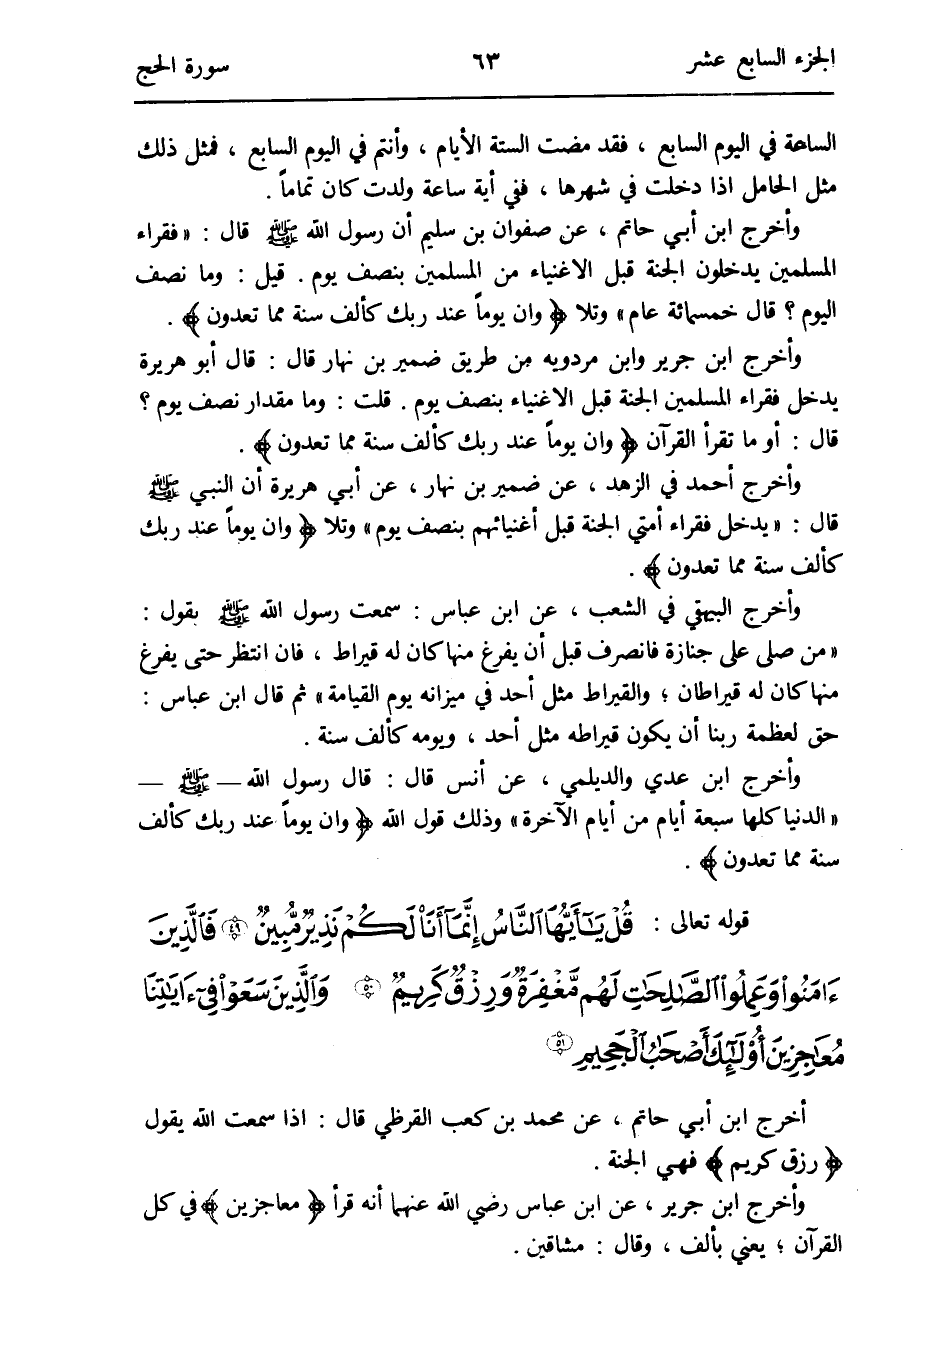 الجزء السابع عشر ٦٣ سورة الحج
الساعة في اليوم السابع ، فقد مضت الستة الأيام ، وأنتم في اليوم السابع ، فمثل ذلك
مثل الحامل اذا دخلت في شهرها ، ففي أية ساعة ولدت كان تماماً .
وأخرج ابن أبي حاتم ، عن صفوان بن سليم أن رسول الله ﷺ قال : «فقراء
المسلمين يدخلون الجنة قبل الاغنياء من المسلمين بنصف يوم . قيل : وما نصف
اليوم ؟ قال خمسمائة عام» وتلا ﴿ وان يوماً عند ربك كألف سنة مما تعدون ﴾ .
وأخرج ابن جرير وابن مردويه من طريق ضمير بن نهار قال : قال أبو هريرة
يدخل فقراء المسلمين الجنة قبل الاغنياء بنصف يوم . قلت : وما مقدار نصف يوم ؟
قال : أو ما تقرأ القرآن ﴿ وان يوماً عند ربك كألف سنة مما تعدون ﴾ .
وأخرج أحمد في الزهد ، عن ضمير بن نهار ، عن أبي هريرة أن النبي ﷺ
قال : «يدخل فقراء أمتي الجنة قبل أغنيائهم بنصف يوم» وتلا ﴿ وان يوماً عند ربك
كألف سنة مما تعدون ﴾ .
وأخرج البيهقي في الشعب ، عن ابن عباس : سمعت رسول الله ﷺ يقول :
«من صلى على جنازة فانصرف قبل أن يفرغ منها كان له قيراط ، فان انتظر حتى يفرغ
منها كان له قيراطان ؛ والقيراط مثل أحد في ميزانه يوم القيامة» ثم قال ابن عباس :
حق لعظمة ربنا أن يكون قيراطه مثل أحد ، ويومه كألف سنة .
وأخرج ابن عدي والديلمي ، عن أنس قال : قال رسول الله — ﷺ —
«الدنيا كلها سبعة أيام من أيام الآخرة» وذلك قول الله ﴿ وان يوماً عند ربك كألف
سنة مما تعدون ﴾ .
قوله تعالى : قُلْ يَٰٓأَيُّهَا ٱلنَّاسُ إِنَّمَآ أَنَا۠ لَكُمْ نَذِيرٌ مُّبِينٌ ٤٩ فَٱلَّذِينَ
ءَامَنُوا۟ وَعَمِلُوا۟ ٱلصَّٰلِحَٰتِ لَهُم مَّغْفِرَةٌ وَرِزْقٌ كَرِيمٌ ٥٠ وَٱلَّذِينَ سَعَوْا۟ فِىٓ ءَايَٰتِنَا
مُعَٰجِزِينَ أُو۟لَٰٓئِكَ أَصْحَٰبُ ٱلْجَحِيمِ ٥١
أخرج ابن أبي حاتم ، عن محمد بن كعب القرظي قال : اذا سمعت الله يقول
﴿ رزق كريم ﴾ فهي الجنة .
وأخرج ابن جرير ، عن ابن عباس رضي الله عنهما أنه قرأ ﴿ معاجزين ﴾ في كل
القرآن ؛ يعني بألف ، وقال : مشاقين .